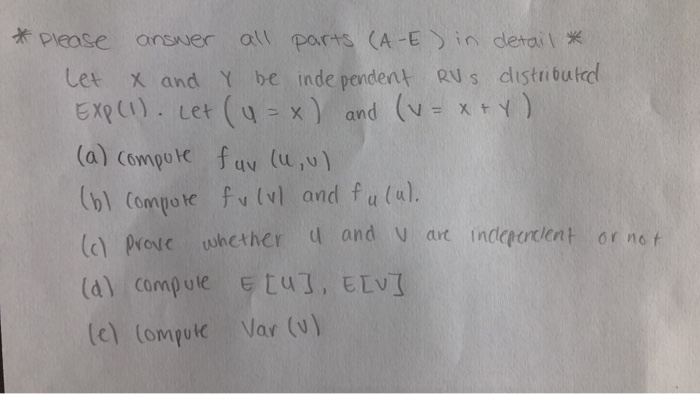 * Please answer all parts (A-E) in detail *
Let X and Y be independent RVs distributed
Exp(1). Let (U = X) and (V = X + Y)
(a) compute fuv (u,v)
(b) compute fv(v) and fu(u).
(c) Prove whether U and V are independent or not
(d) compute E[U], E[V]
(e) compute Var(V)